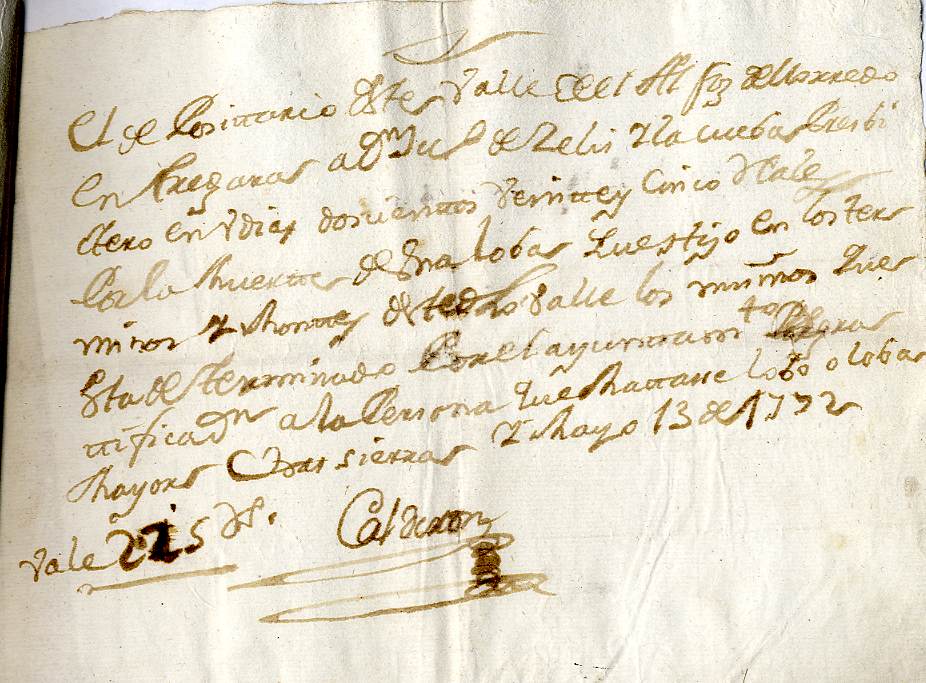 El de Posittario deste Valle de el Alfoz de llorredo
entregaras a Dn Jul de Zelis y la cueba Presbi
ctero en Vdias doscientos veintte y Cinco Rales
Por la Muertte de Una loba que stijo en los ter
minos y Monttes de este dho Valle los mismos que
Esta desterminado por el ayunttamto gras
ttificadn a la Persona que Mattare lobo o loba
Mayors sierras y Mayo 13 de 1772
Vale 225 Rs.
Calderon